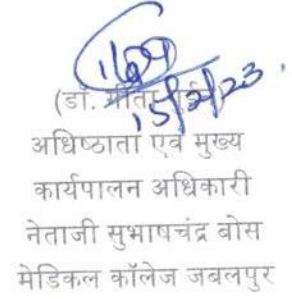 15/2/23
(डॉ. गीता
अधिष्ठाता एवं मुख्य
कार्यपालन अधिकारी
नेताजी सुभाषचंद्र बोस
मेडिकल कॉलेज जबलपुर